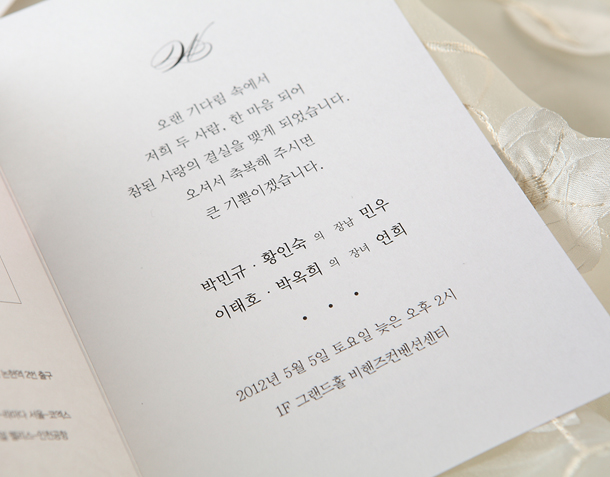 오랜 기다림 속에서
저희 두 사람, 한 마음 되어
참된 사랑의 결실을 맺게 되었습니다.
오셔서 축복해 주시면
큰 기쁨이겠습니다.
박민규 · 황인숙 의 장남 민우
이태호 · 박옥희 의 장녀 연희
2012년 5월 5일 토요일 늦은 오후 2시
1F 그랜드홀 비핸즈컨벤션센터
논현역 2번 출구
서울-코엑스